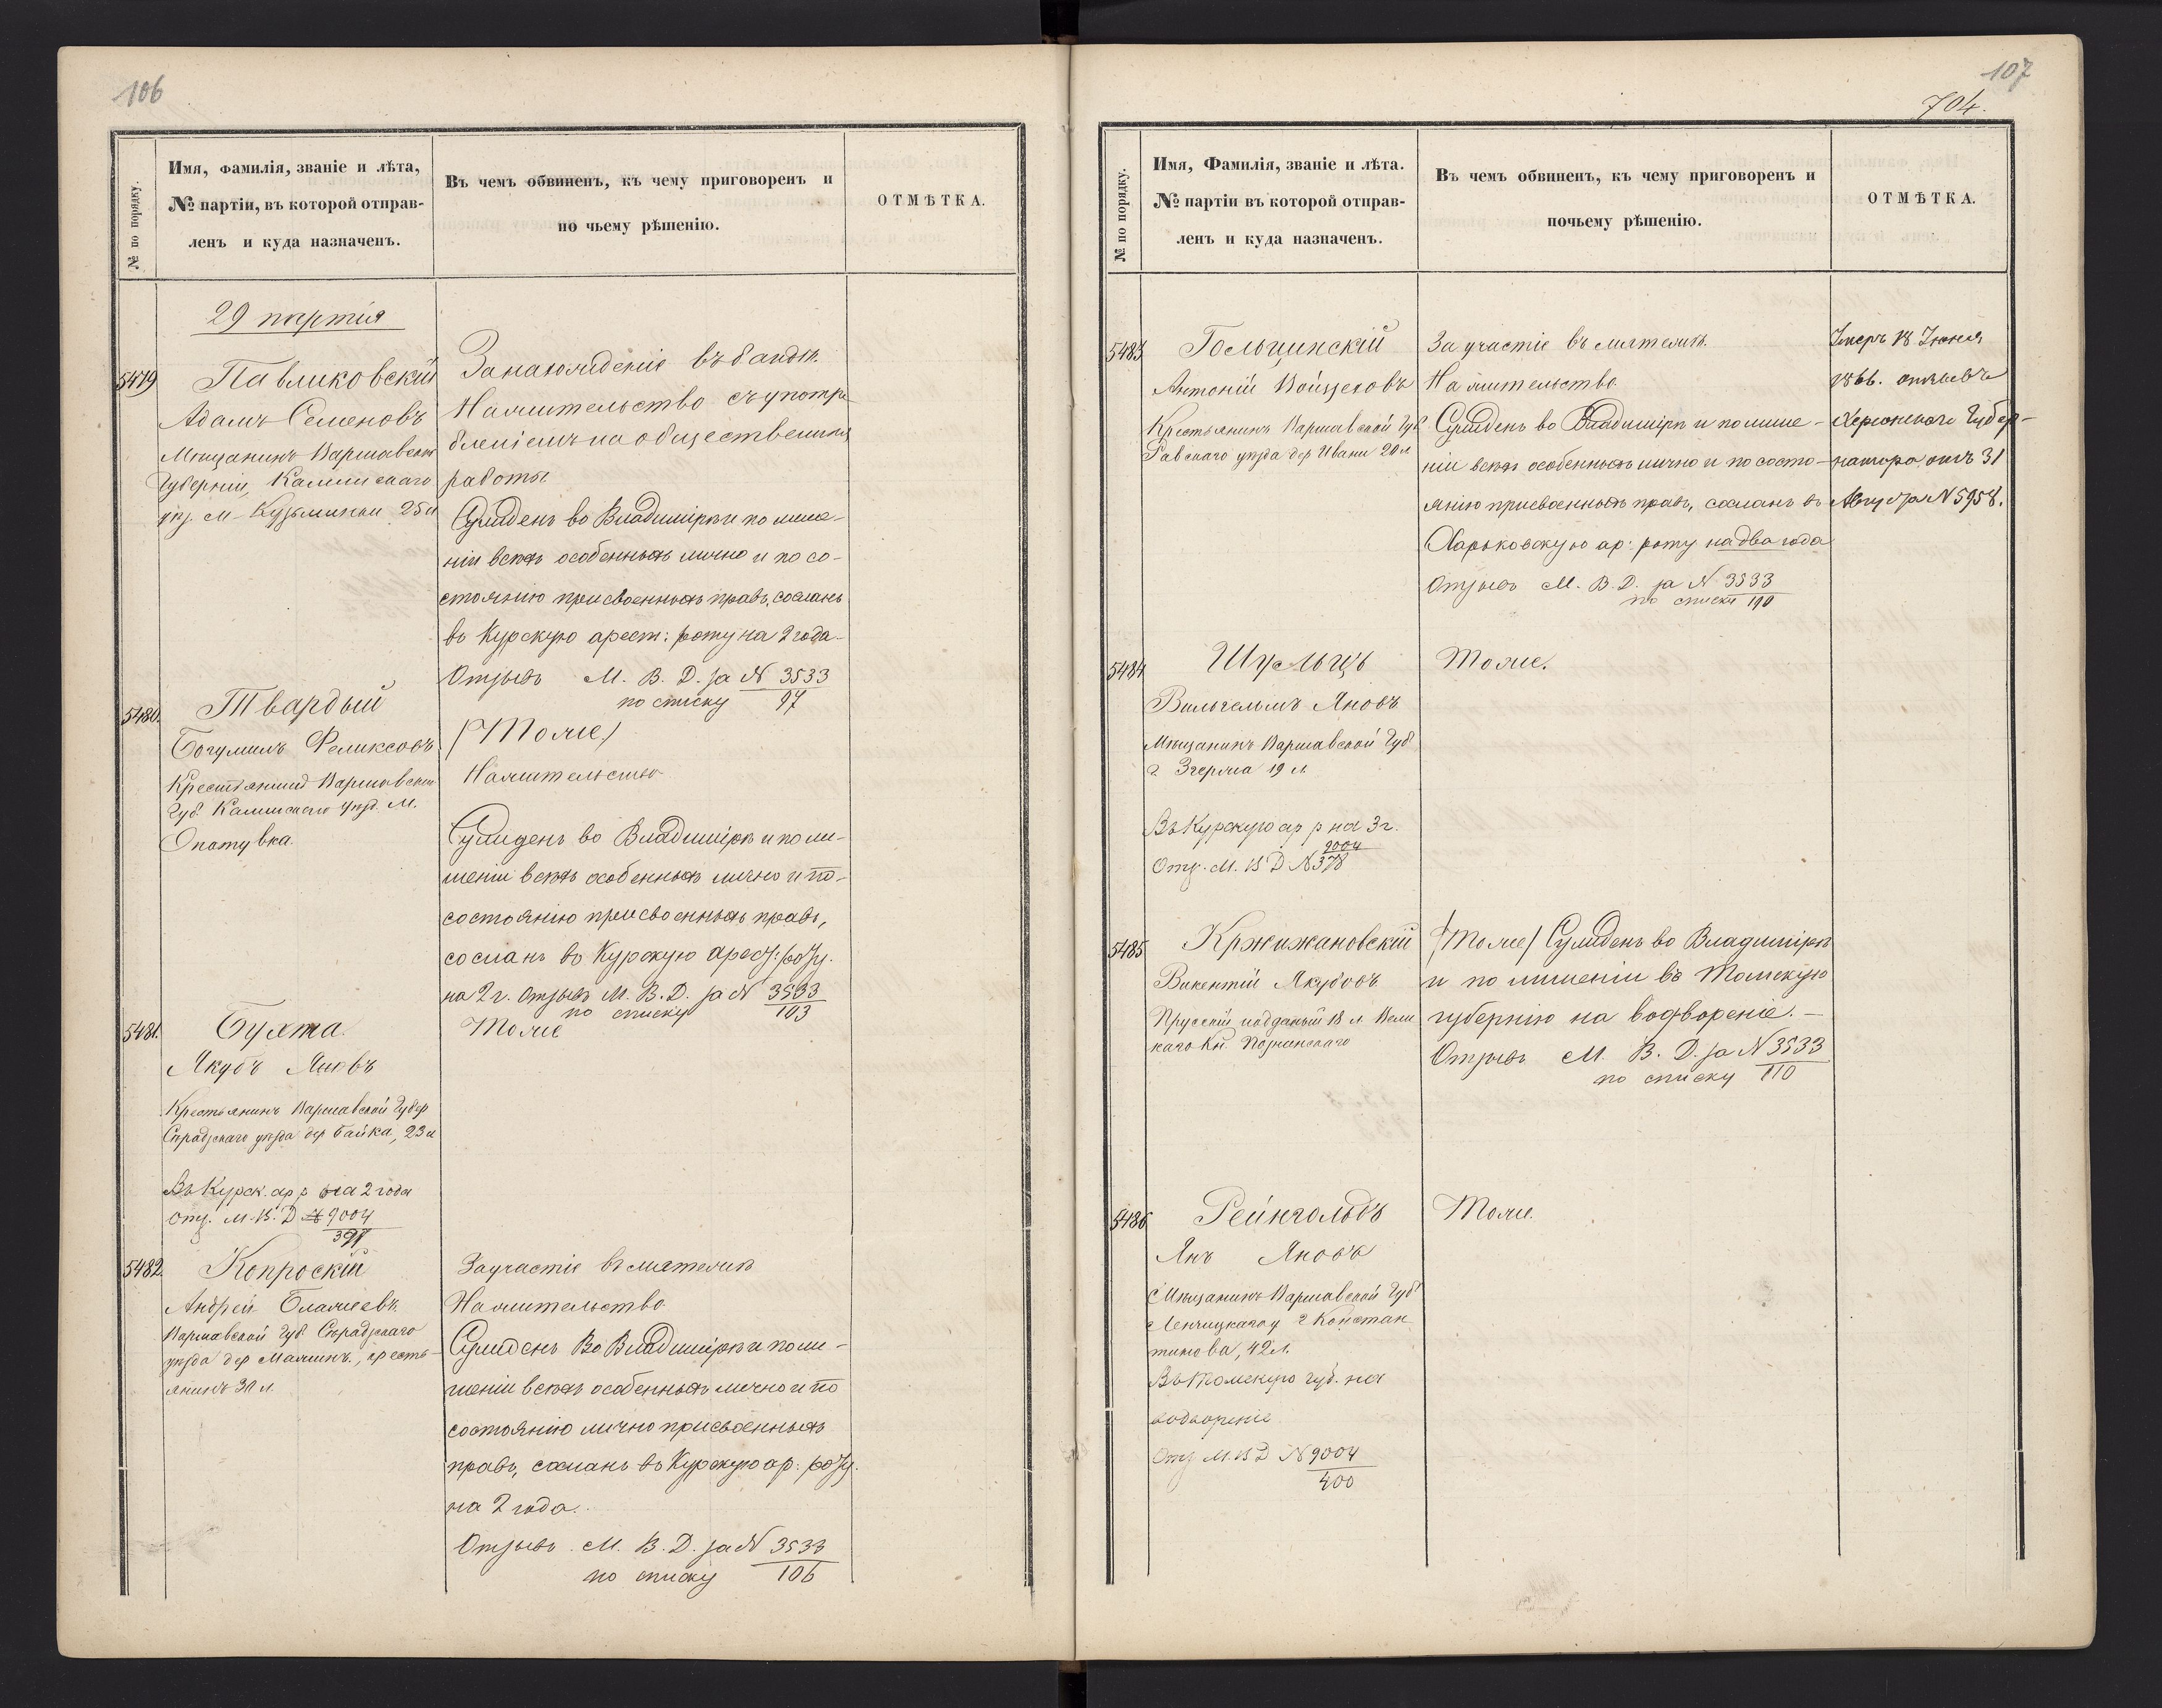 106
№ по порядку.
Имя, фамилія, званіе и лѣта,
№ партіи, въ которой отправ-
ленъ и куда назначенъ.
Въ чемъ обвиненъ, къ чему приговоренъ и
по чьему рѣшенію.
ОТМѢТКА.
29 партія
5479
Павликовскій
Адамъ Семеновъ
Мѣщанинъ Варшавской
Губерніи, Калишскаго
уѣз. м. Кузьминки 25 л
За нахожденіе въ бандѣ.
На жительство съ употре
бленіемъ на общественныя
работы.
Сужденъ во Владимірѣ и по лише-
ніи всѣхъ особенныхъ лично и по со-
стоянію присвоенныхъ правъ, сосланъ
въ Курскую арест: роту на 2 года.
Отзывъ М. В. Д. за № 3533
по списку 97
5480.
Твардый
Богумилъ Феликсовъ
Крестьянинъ Варшавской
Губ. Калишскаго уѣзд. М.
Опатувка.
(Тоже)
На жительство
Сужденъ во Владимірѣ и по ли-
шеніи всѣхъ особенныхъ лично и по-
состоянію присвоенныхъ правъ,
сосланъ въ Курскую арест: роту.
на 2 г. Отзывъ М. В. Д. за № 3533
по списку 103
5481.
Бухта.
Якубъ Яновъ
Крестьянинъ Варшавской Губер
Сѣрадзскаго уѣзда дер Байка, 23 л
Въ Курск. ар р на 2 года
Отз. М. В. Д № 9004
391
Тоже
5482.
Копроскій
Андрей Блажеевъ.
Варшавской Губ. Сѣрадзскаго
уѣзда дер Мажинъ, кресть-
янинъ 30 л.
За участіе въ мятежѣ
На жительство
Сужденъ Во Владимірѣ и по ли-
шеніи всѣхъ особенныхъ лично и по
состоянію лично присвоенныхъ
правъ, сосланъ въ Курскую ар: роту.
на 2 года.
Отзывъ М. В. Д. за № 3533
по списку 106
107
704.
№ по порядку.
Имя, Фамилія, званіе и лѣта.
№ партіи въ которой отправ-
ленъ и куда назначенъ.
Въ чемъ обвиненъ, къ чему приговоренъ и
почьему рѣшенію.
ОТМѢТКА.
5483
Гольчинскій
Антоній Войцеховъ
Крестьянинъ Варшавской Губ
Равскаго уѣзда дер Ивани 20 л
За участіе въ мятежѣ.
На жительство
Сужденъ во Владимірѣ и по лише-
ніи всѣхъ особенныхъ лично и по состо-
янію присвоенныхъ правъ, сосланъ въ
Харьковскую ар: роту на два года
Отзывъ М. В. Д. за № 3533
по списку 190
Умеръ 18 Іюня
1866. отзывъ
Херсонскаго Губер-
натора отъ 31
Августа № 5958.
5484
Шульцъ
Вильгельмъ Яновъ
Мѣщанинъ Варшавской Губ
г. Згержа 19 л.
Въ Курскую ар р на 3 г.
Отз. М. В Д № 9004
378
Тоже.
5485
Кржижановскій
Викентій Якубовъ
Прусскій подданый 18 л. Вели
каго Кн. Познанскаго
(Тоже) Сужденъ во Владимірѣ
и по лишеніи въ Томскую
губернію на водвореніе. —
Отзывъ М. В. Д. за № 3533
по списку 110
5486
Рейнгольдъ
Янъ Яновъ
Мѣщанинъ Варшавской Губ
Ленчицкаго у г Констан
тинова, 42 л.
Въ Томскую губ. на
водвореніе
Отз М. В Д № 9004
400
Тоже.